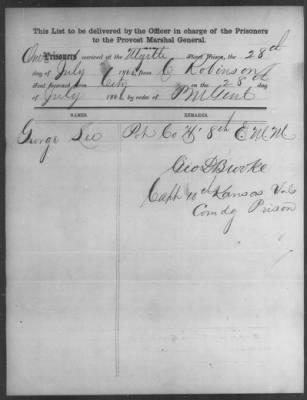 This List to be delivered by the Officer in charge of the Prisoners
to the Provost Marshal General.
One Prisoners received at the Myrtle Street Prison, the 28th
day of July 186 from C Robinson
And forwarded from City on the 28th day
of July 186 by order of P M Genl
NAMES. REMARKS.
George Lee Pvt Co "H" 8th E M M
Geo D Brooke
Capt 10th Kansas Vols
Comdg Prison